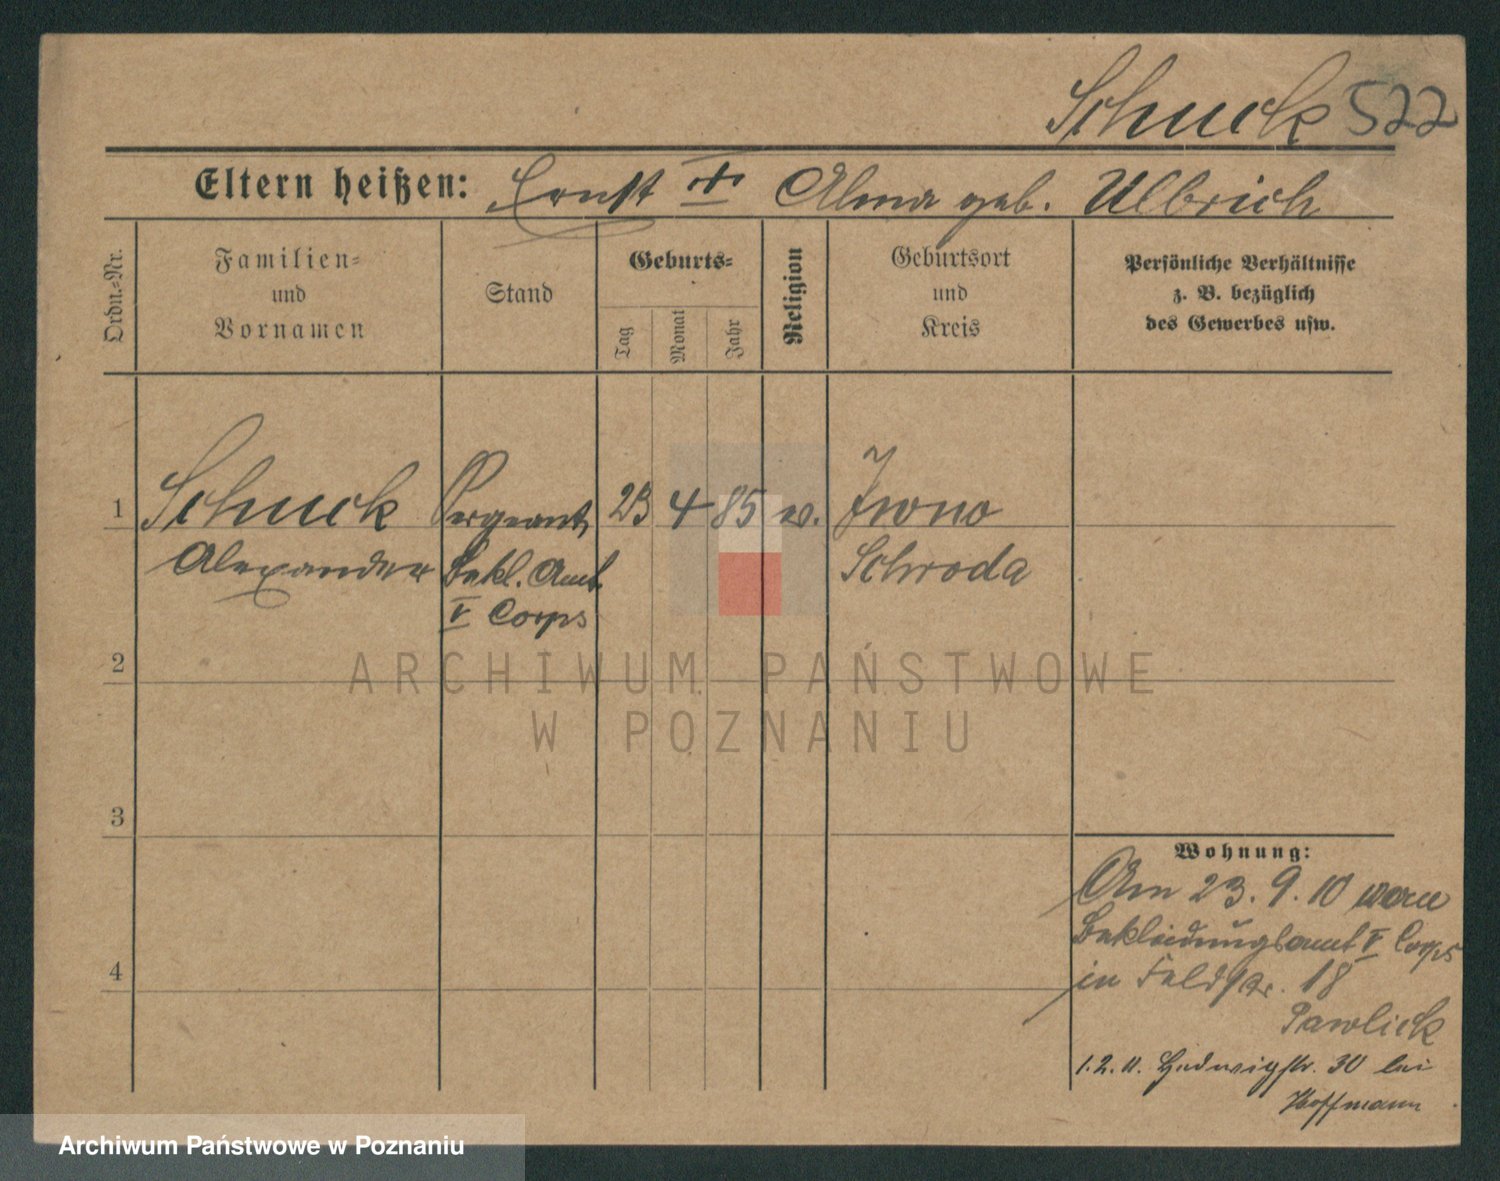 Schuck 522
Eltern heißen: Ernst + Alma geb. Ulbrich
Ordn.-Nr.
Familien-
und
Vornamen
Stand
Geburts-
Tag
Monat
Jahr
Religion
Geburtsort
und
Kreis
Persönliche Verhältnisse
z. B. bezüglich
des Gewerbes usw.
1 Schuck Sergeant 23 4 85 Iwno
Alexander Bekl. Amt Schroda
V Corps
2
3
4
Wohnung:
Am 23. 9. 10 vom
Bekleidungsamt V Corps
in Feldstr. 18
Pawlick
1. 2. 11. Hedwigstr. 30 bei
Hoffmann
ARCHIWUM PAŃSTWOWE
W POZNANIU
Archiwum Państwowe w Poznaniu